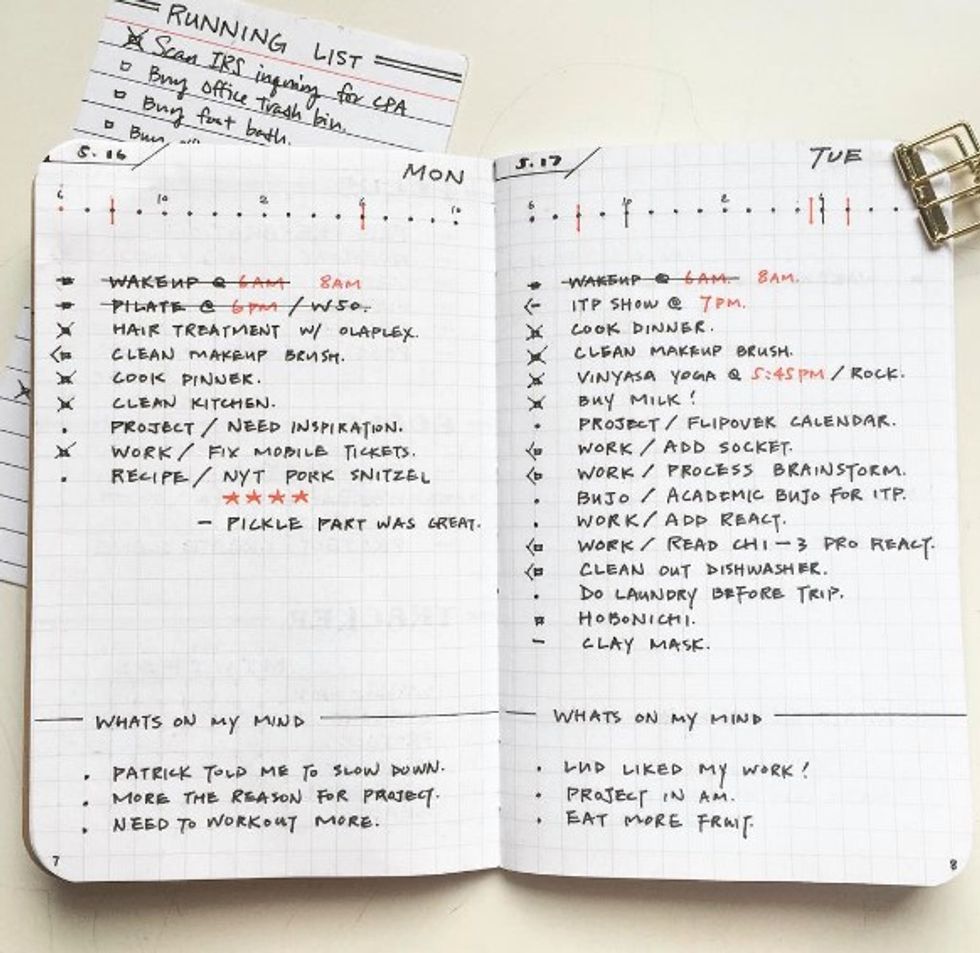 RUNNING LIST
Scan IRS inquiry for CPA
Buy office trash bin.
Buy foot bath.
Buy
5.16
MON
6 10 2 6 10
WAKEUP @ 6AM 8AM
PILATE @ 6PM / W50.
HAIR TREATMENT W/ OLAPLEX.
CLEAN MAKEUP BRUSH.
COOK DINNER.
CLEAN KITCHEN.
PROJECT / NEED INSPIRATION.
WORK / FIX MOBILE TICKETS.
RECIPE / NYT PORK SNITZEL
★★★★
— PICKLE PART WAS GREAT.
WHATS ON MY MIND
PATRICK TOLD ME TO SLOW DOWN.
MORE THE REASON FOR PROJECT.
NEED TO WORKOUT MORE.
7
5.17
TUE
6 2
WAKEUP @ 6AM. 8AM.
ITP SHOW @ 7PM.
COOK DINNER.
CLEAN MAKEUP BRUSH.
VINYASA YOGA @ 5:45PM / ROCK.
BUY MILK!
PROJECT / FLIPOVER CALENDAR.
WORK / ADD SOCKET.
WORK / PROCESS BRAINSTORM.
BUJO / ACADEMIC BUJO FOR ITP.
WORK / ADD REACT.
WORK / READ CH1-3 PRO REACT.
CLEAN OUT DISHWASHER.
DO LAUNDRY BEFORE TRIP.
HOBONICHI.
CLAY MASK.
WHATS ON MY MIND
LIKED MY WORK!
PROJECT IN AM.
EAT MORE FRUIT.
8